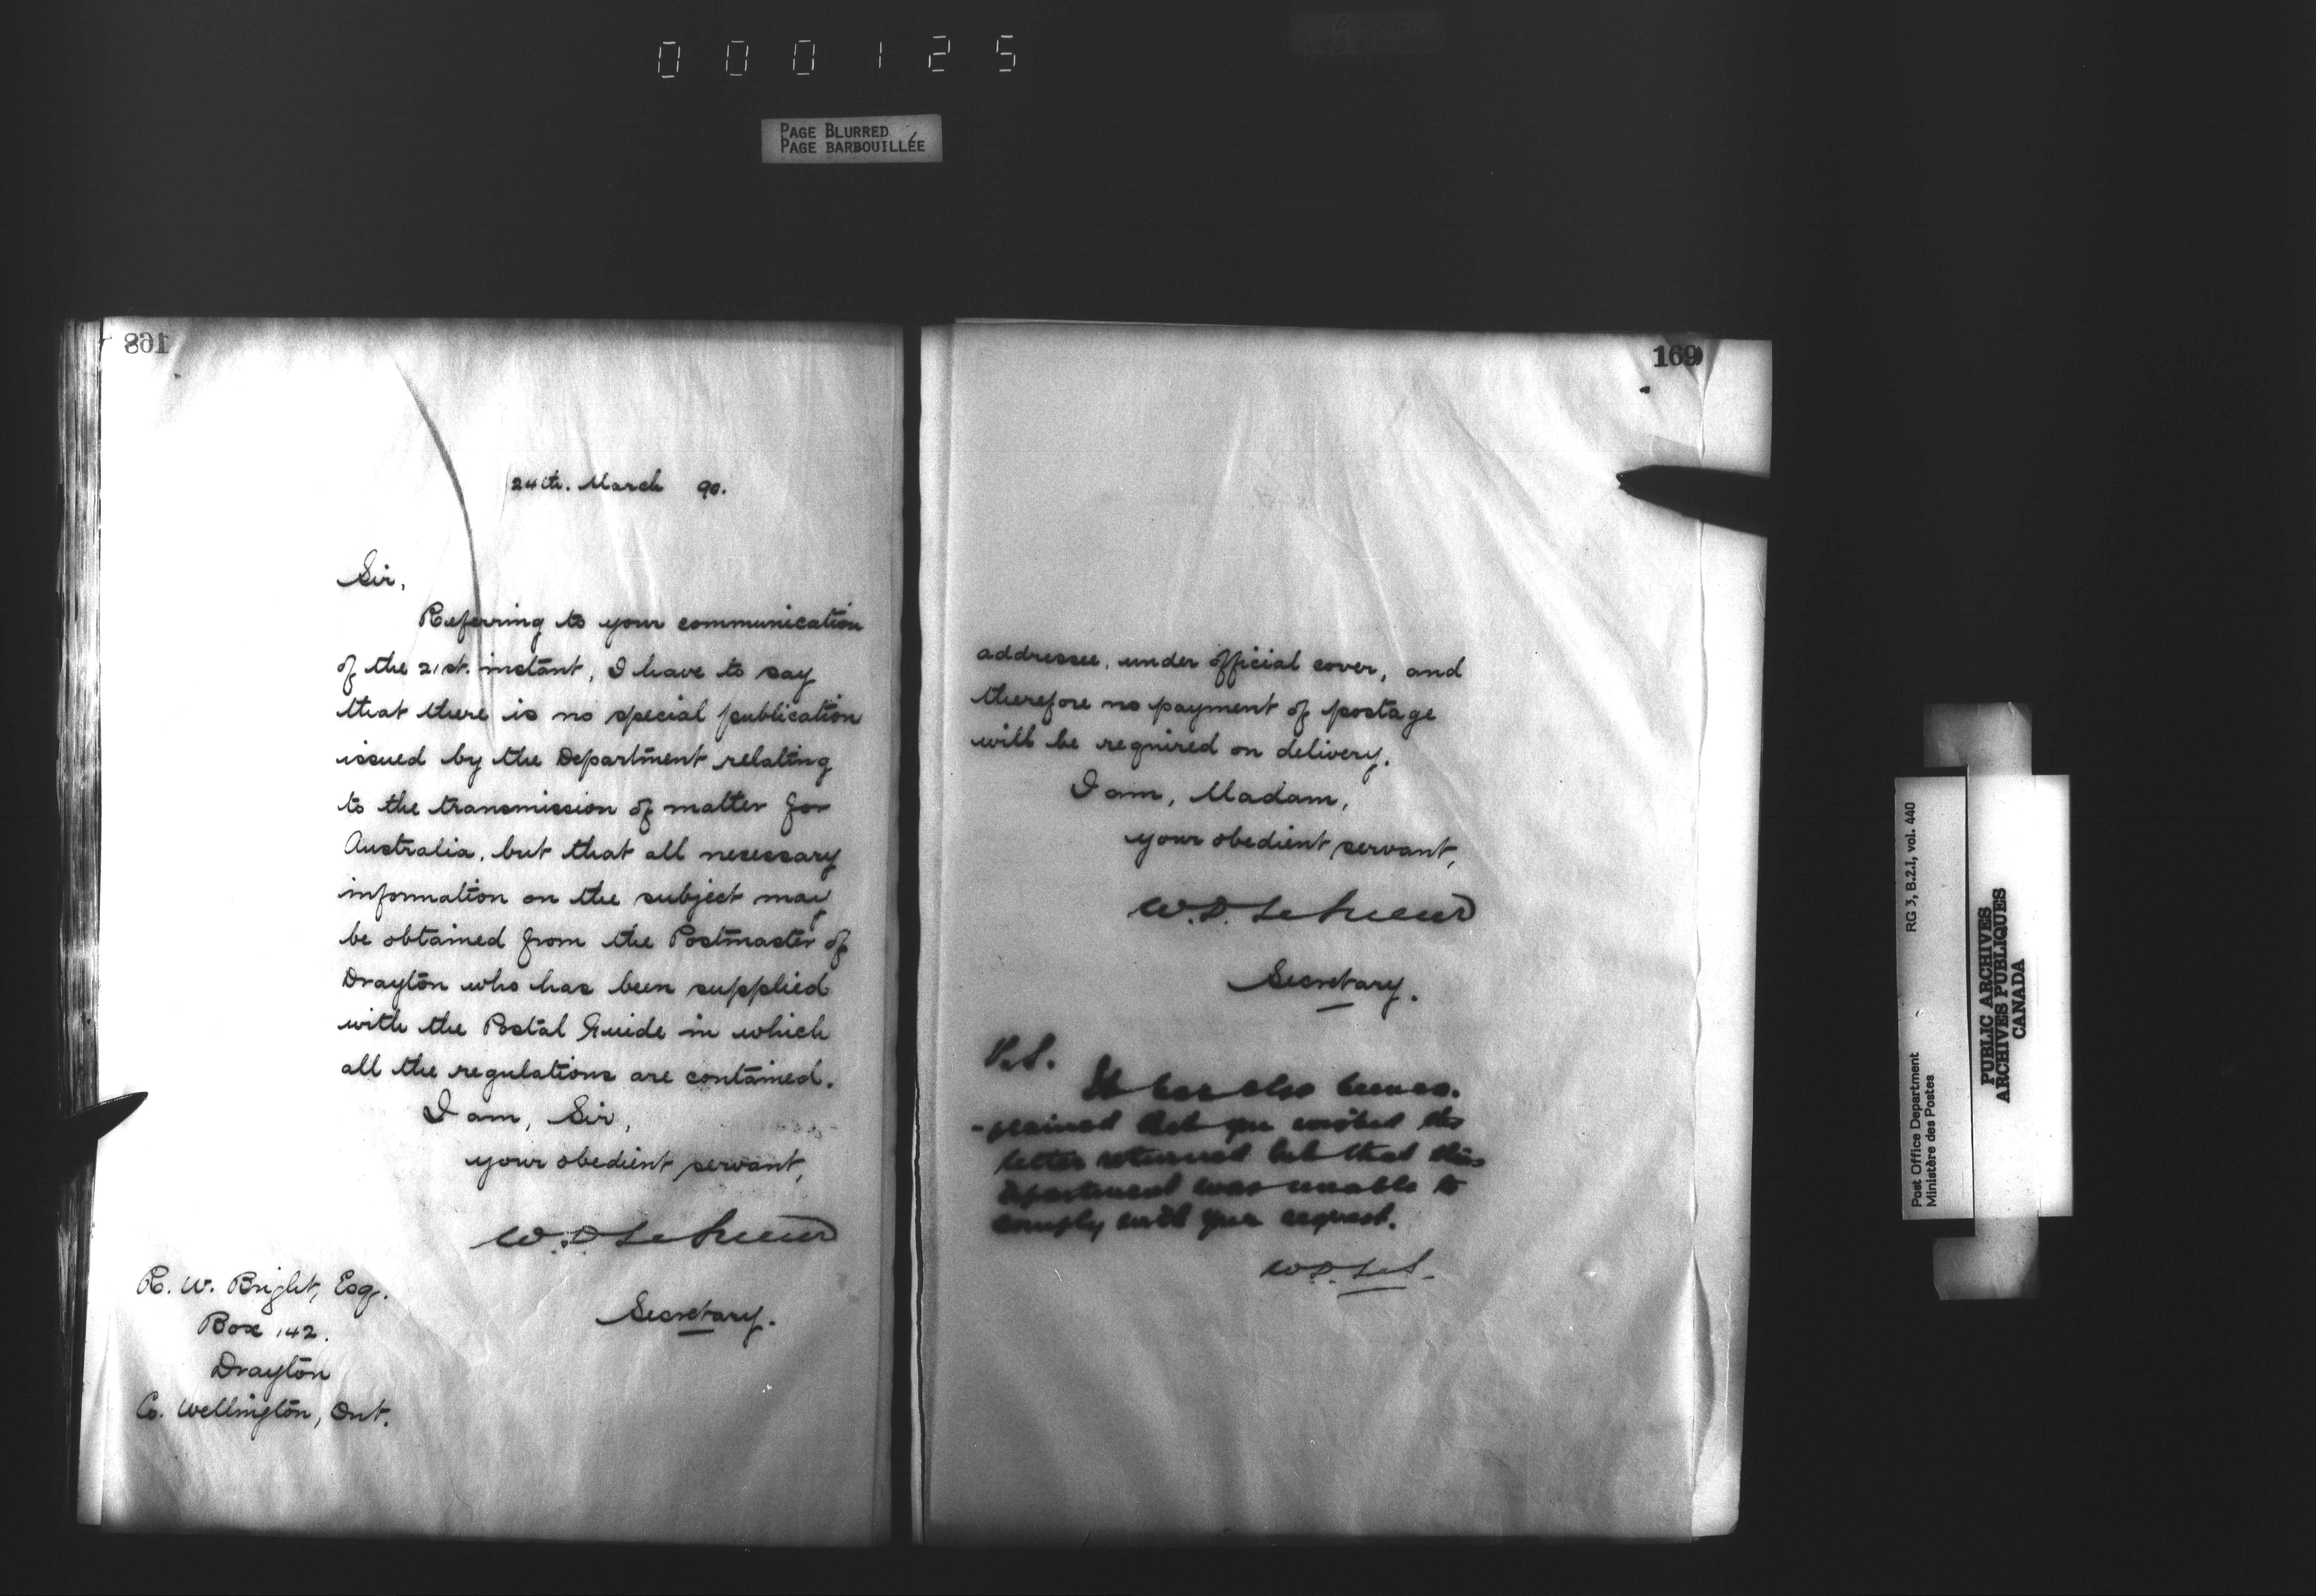 000125
PAGE BLURRED
PAGE BARBOUILLÉE
168
24th. March 90.
Sir,
Referring to your communication
of the 21st. instant, I have to say
that there is no special publication
issued by the Department relating
to the transmission of matter for
Australia, but that all necessary
information on the subject may
be obtained from the Postmaster of
Drayton who has been supplied
with the Postal Guide in which
all the regulations are contained.
I am, Sir,
your obedient servant,
W.D. LeSueur
Secretary.
R. W. Bright, Esq.
Box 142.
Drayton
Co. Wellington, Ont.
169
addressee, under official cover, and
therefore no payment of postage
will be required on delivery.
I am, Madam,
your obedient servant,
W.D. LeSueur
Secretary.
P.S.
It has also
-plained that you wished the
letter returned but that this
department was unable to
comply with your request.
W.D. LeS.
RG 3, B.2.I, vol. 440
Post Office Department
Ministère des Postes
PUBLIC ARCHIVES
ARCHIVES PUBLIQUES
CANADA